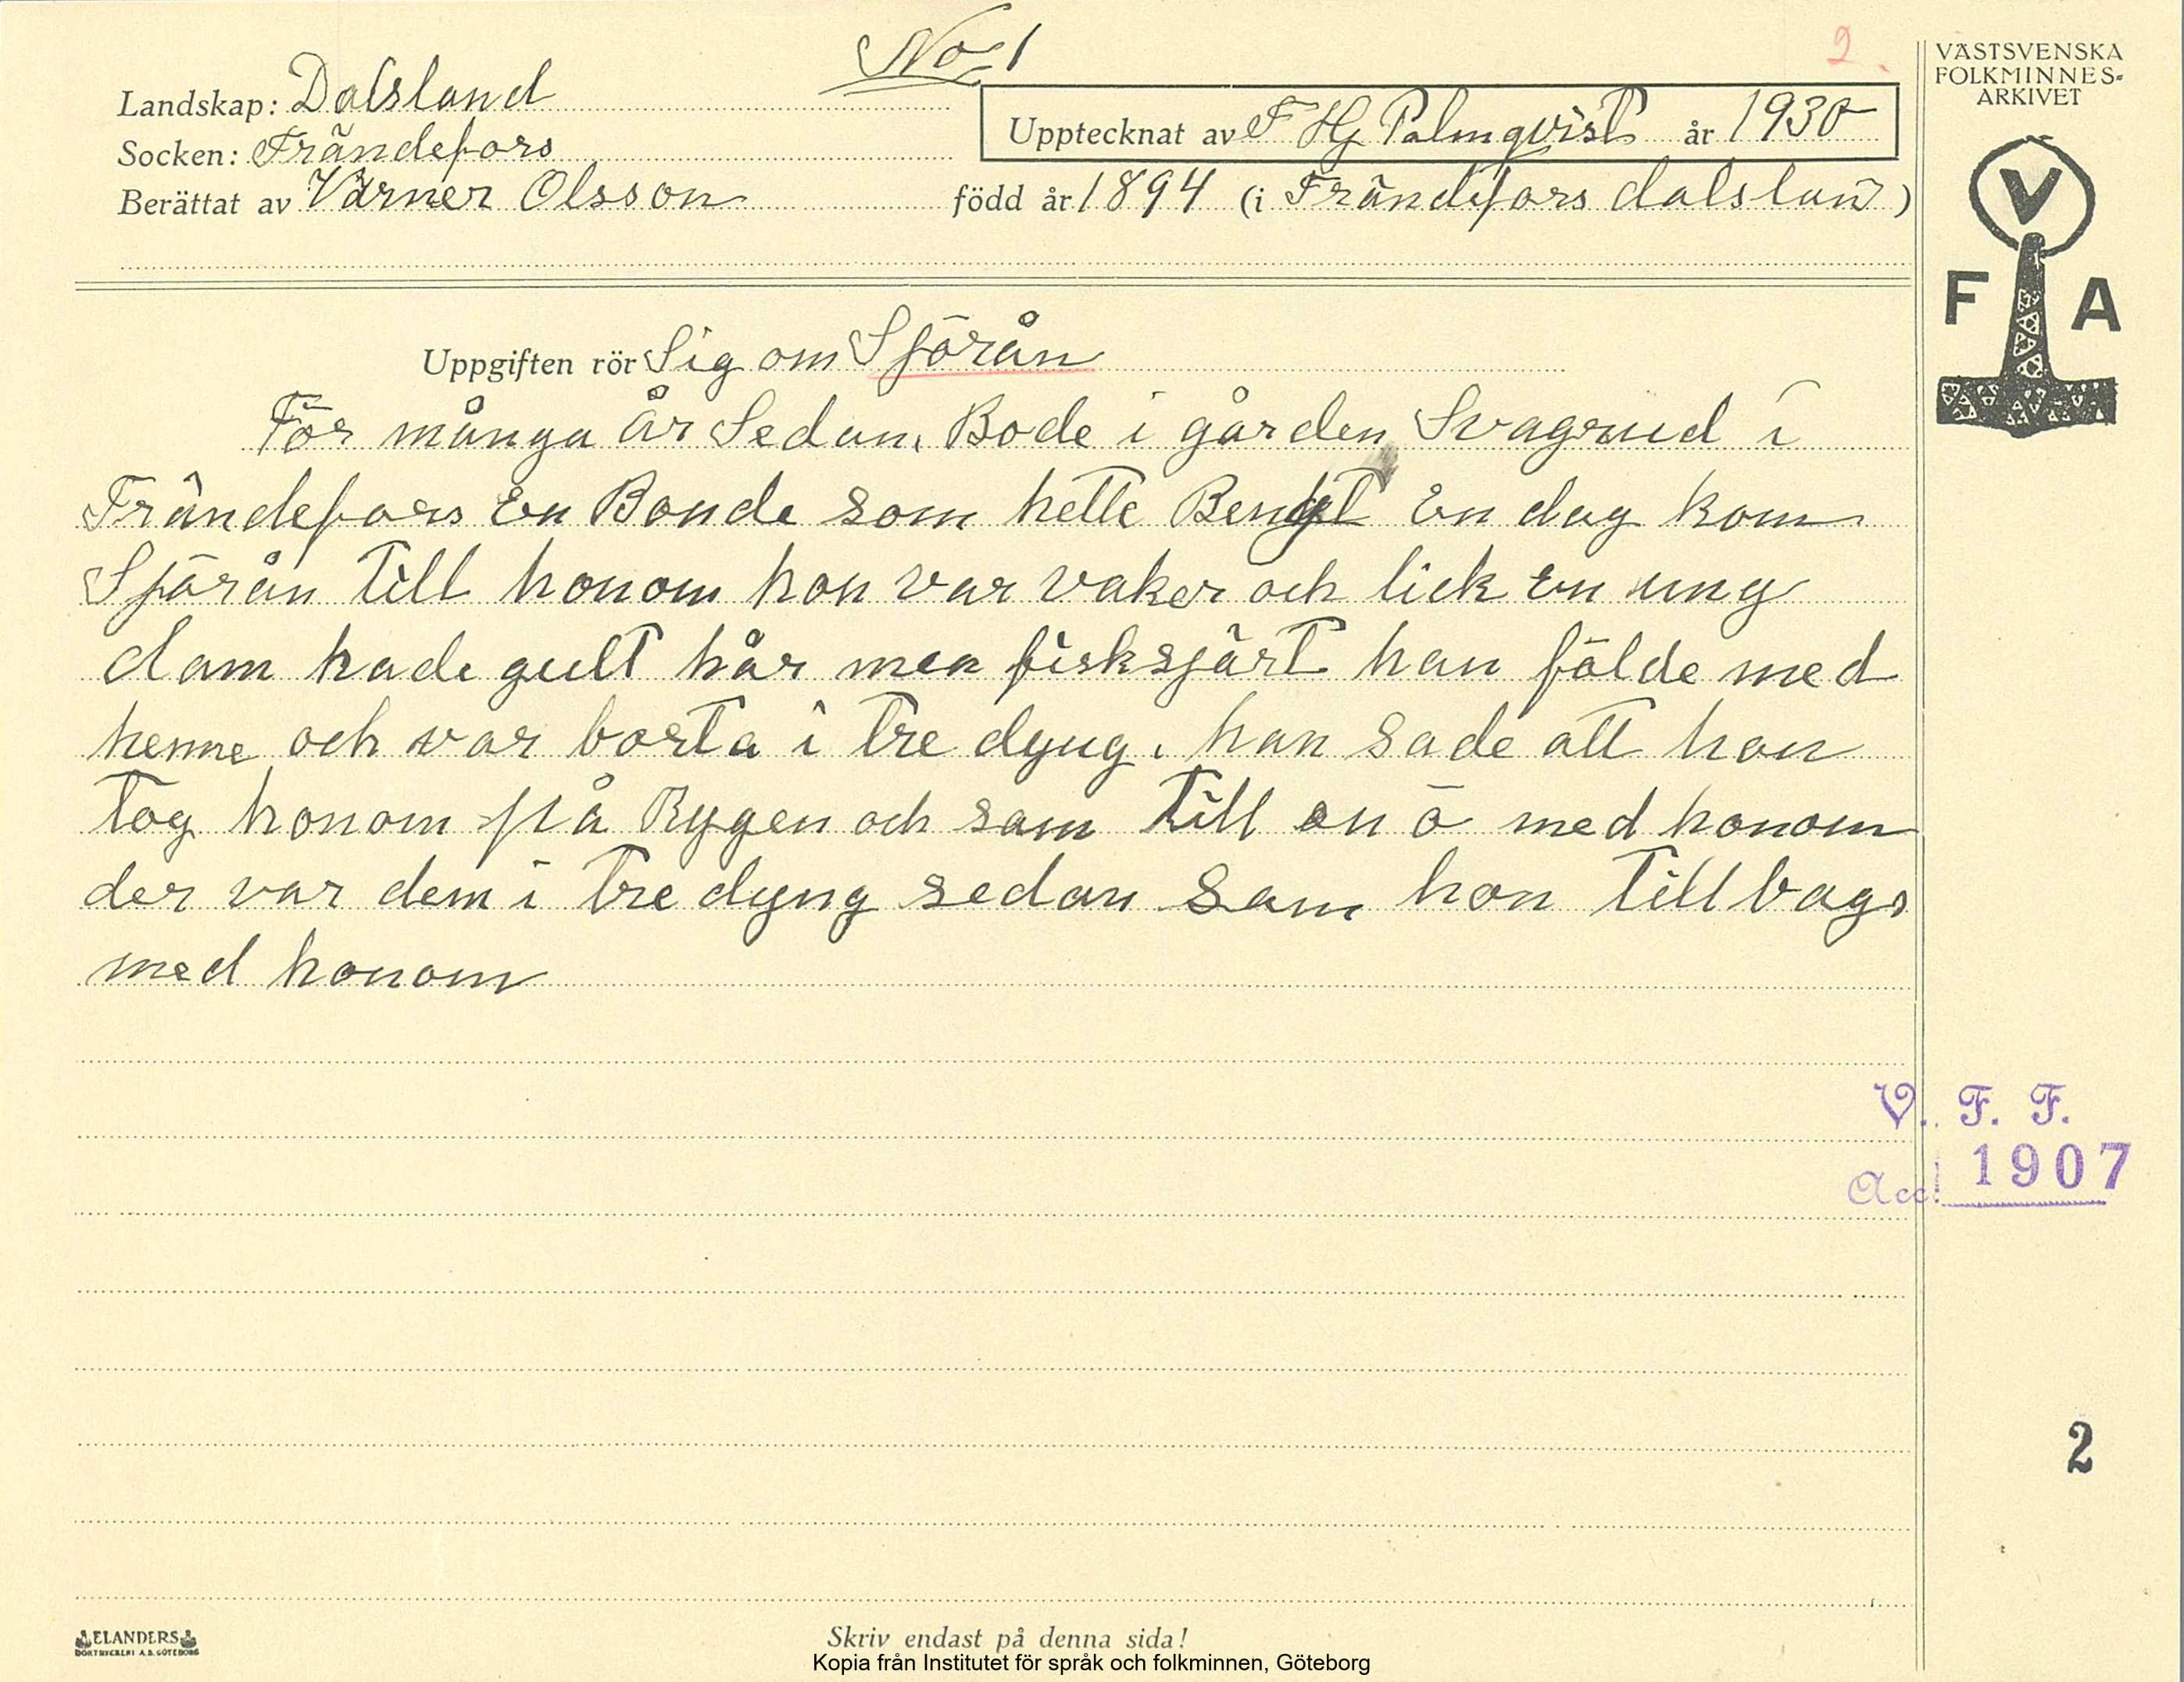 No 1
2.
Landskap: Dalsland
Socken: Frändefors
Berättat av Värner Olsson
Upptecknat av F Hj Palmqvist år 1930
född år 1894 (i Frändefors dalsland)
VÄSTSVENSKA
FOLKMINNES-
ARKIVET
V
F A
Uppgiften rör Sig om Sjörån
För många år Sedan, Bode i gården Svagerud i
Frändefors En Bonde som hette Bengt En dag kom
Sjörån till honom hon var vaker och lick En ung
dam hade gult hår men fisksjärt han földe med
henne och var borta i tre dyng. han sade att hon
tog honom på Rygen och sam till en ö med honom
der var dem i tre dyng sedan Sam hon tillbags
med honom
V. F. F.
Acc. 1907
2
ELANDERS
BOKTRYCKERI A.B. GÖTEBORG
Skriv endast på denna sida!
Kopia från Institutet för språk och folkminnen, Göteborg